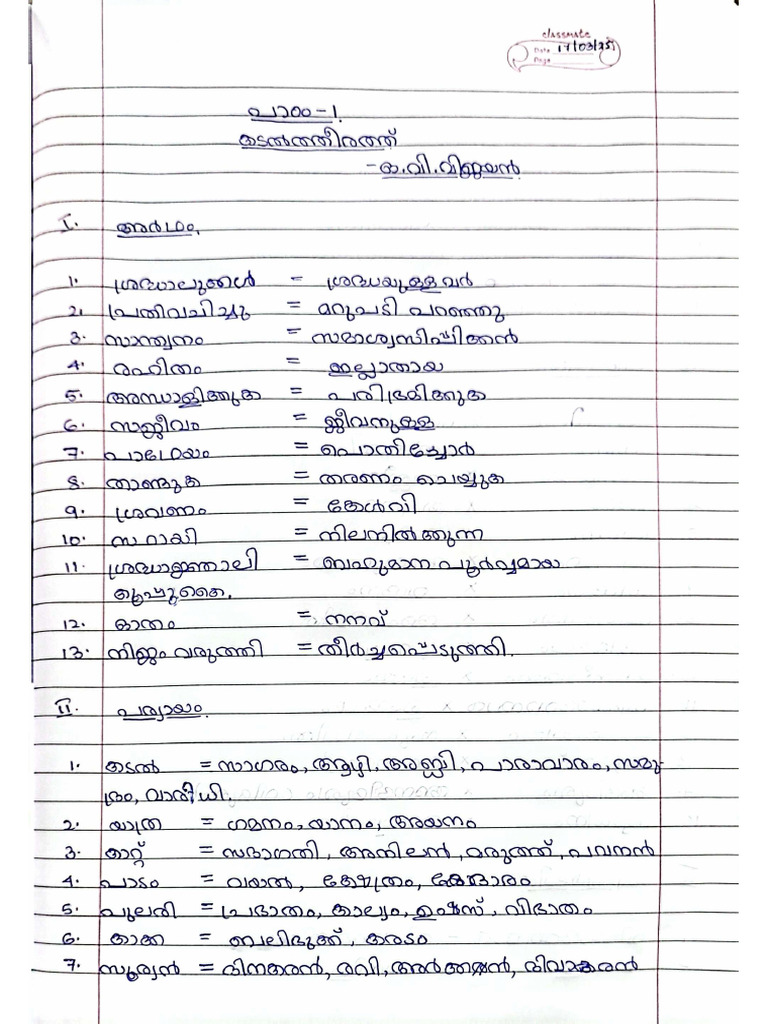 classmate
Date 17/03/25
Page
പാഠം-1.
കടൽത്തീരത്ത്
-ഒ.വി.വിജയൻ
I. അർഥം.
1. ശ്രദ്ധാലുക്കൾ = ശ്രദ്ധയുള്ളവർ
2. പ്രതിവചിച്ചു = മറുപടി പറഞ്ഞു
3. സാന്ത്വനം = സമാശ്വസിപ്പിക്കൽ
4. രഹിതം = ഇല്ലാതായ
5. അമ്പാളിക്കുക = പരിഭ്രമിക്കുക
6. സജീവം = ജീവനുള്ള
7. പാഥേയം = പൊതിച്ചോർ
8. താണ്ടുക = തരണം ചെയ്യുക
9. ശ്രവണം = കേൾവി
10. സ്ഥായി = നിലനിൽക്കുന്ന
11. ശ്രദ്ധാഞ്ജലി = ബഹുമാന പൂർവ്വമായ
കൂപ്പുകൈ.
12. ഓതം = നനവ്
13. നിജം വരുത്തി = തീർച്ചപ്പെടുത്തി.
II. പര്യായം.
1. കടൽ = സാഗരം, ആഴി, അബ്ധി, പാരാവാരം, സമു-
ദ്രം, വാരിധി.
2. യാത്ര = ഗമനം, യാനം, അയനം
3. കാറ്റ് = സദാഗതി, അനിലൻ, മരുത്ത്, പവനൻ
4. പാടം = വയൽ, ക്ഷേത്രം, കേദാരം
5. പുലരി = പ്രഭാതം, കാല്യം, ഉഷസ്, വിഭാതം
6. കാക്ക = ബലിഭുക്ക്, കരടം
7. സൂര്യൻ = ദിനകരൻ, രവി, അർക്കൻ, ദിവാകരൻ